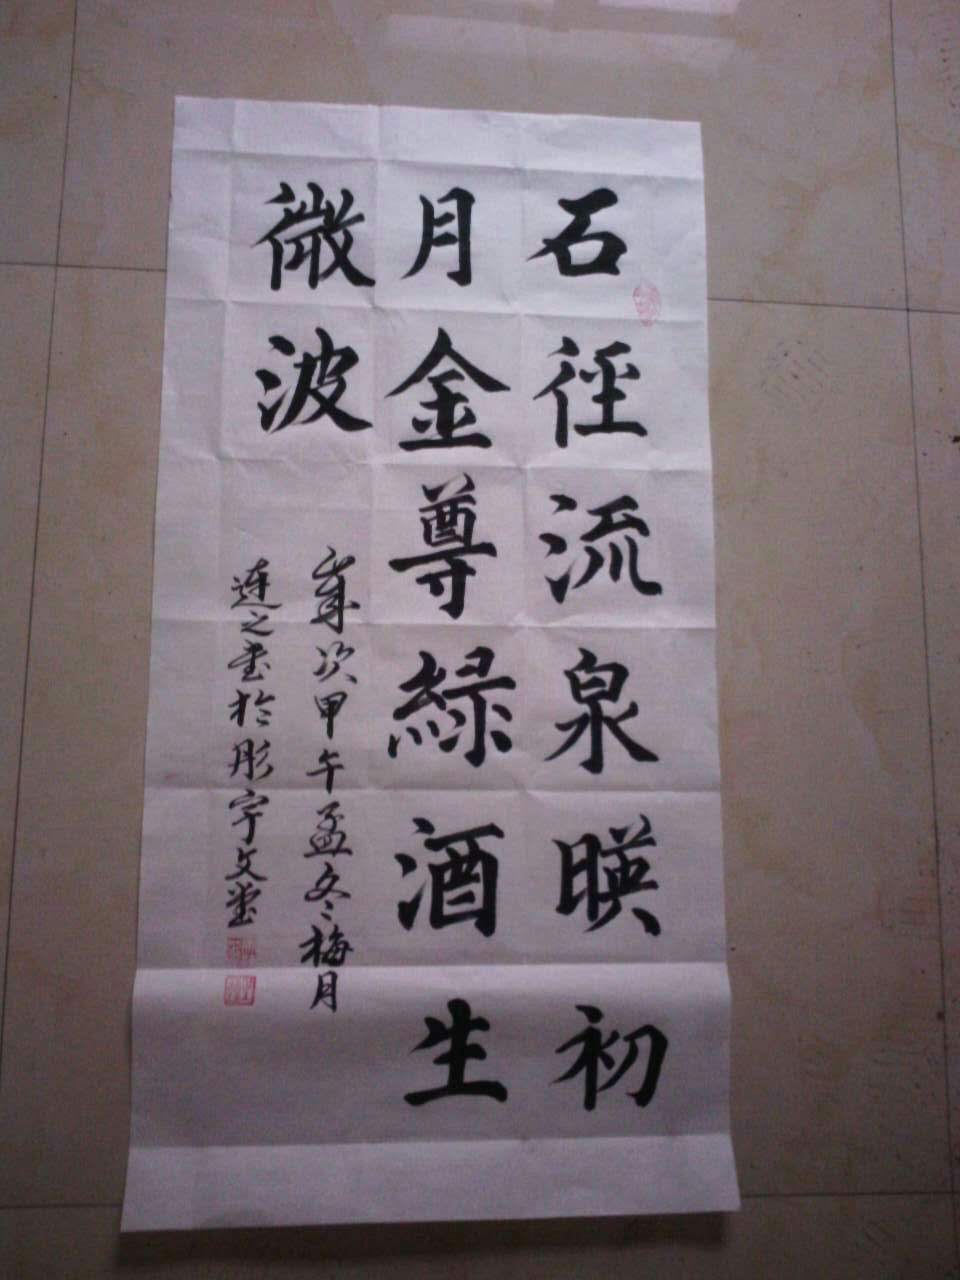 石徑流泉暎初
月金尊綠酒生
微波
歲次甲午孟冬梅月
連之書於彤宇文堂